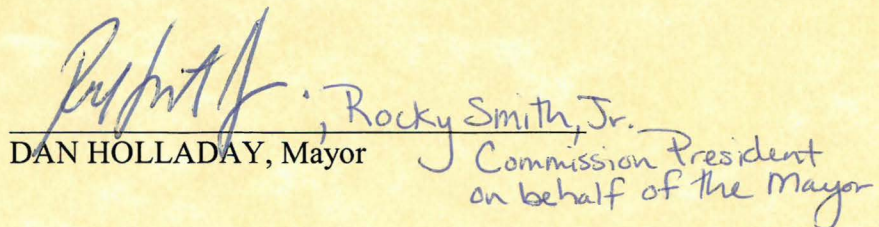 ; Rocky Smith, Jr.
DAN HOLLADAY, Mayor
Commission President
on behalf of the Mayor